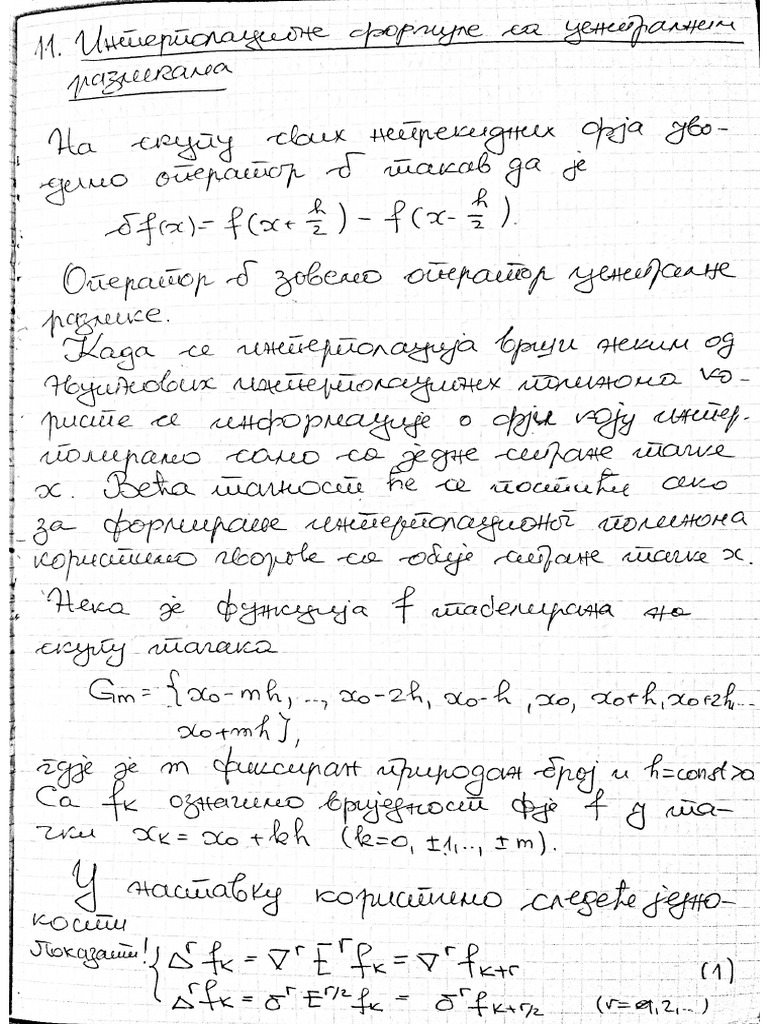 11. Интерполационе формуле са централним
разликама
На скупу свих непрекидних ф-ја уво-
димо оператор δ такав да је
δf(x) = f(x + h/2) − f(x − h/2).
Оператор δ зовемо оператор централне
разлике.
Када се интерполација врши неким од
Њутнових интерполационих полинома ко-
ристе се информације о ф-ји коју интер-
полирамо само са једне стране тачке
x. Већа тачност ће се постићи ако
за формирање интерполационог полинома
користимо чворове са обије стране тачке x.
Нека је функција f табелирана на
скупу тачака
Gm = {x₀-mh, .., x₀-2h, x₀-h, x₀, x₀+h, x₀+2h, ...
x₀+mh},
гдје је m фиксиран природан број и h=const>0
Са fₖ означимо вриједност ф-је f у та-
чки xₖ = x₀ + kh (k=0, ±1, .., ±m).
У наставку користимо следеће једна-
кости
Показати! { Δʳ fₖ = ∇ʳ Eʳ fₖ = ∇ʳ fₖ₊ᵣ (1)
Δʳ fₖ = δʳ E^{r/2} fₖ = δʳ f_{k+r/2} (r=1,2,...)